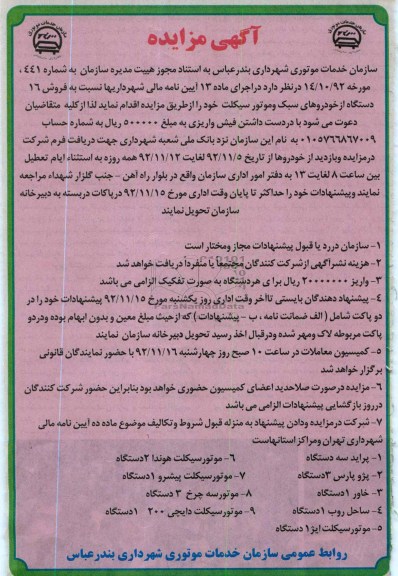 آگهی مزایده
سازمان خدمات موتوری شهرداری بندرعباس به استناد مجوز هییت مدیره سازمان به شماره ۴۴۱،
مورخه ۱۴/۱۰/۹۲ درنظر دارد دراجرای ماده ۱۳ آیین نامه مالی شهرداریها نسبت به فروش ۱۶
دستگاه ازخودروهای سبک وموتور سیکلت خود را ازطریق مزایده اقدام نماید لذا ازکلیه متقاضیان
دعوت می شود با دردست داشتن فیش واریزی به مبلغ ۵۰۰۰۰۰ ریال به شماره حساب
۰۱۰۵۷۶۶۸۶۷۰۰۹ به نام این سازمان نزد بانک ملی شعبه شهرداری جهت دریافت فرم شرکت
درمزایده وبازدید از خودروها از تاریخ ۹۲/۱۱/۵ لغایت ۹۲/۱۱/۱۲ همه روزه به استثناء ایام تعطیل
بین ساعت ۸ لغایت ۱۳ به دفتر امور اداری سازمان واقع در بلوار راه آهن - جنب گلزار شهداء مراجعه
نمایند وپیشنهادات خود را حداکثر تا پایان وقت اداری مورخ ۹۲/۱۱/۱۵ درپاکات دربسته به دبیرخانه
سازمان تحویل نمایند
۱- سازمان دررد یا قبول پیشنهادات مجاز ومختار است
۲- هزینه نشرآگهی ازشرکت کنندگان مجتمعاً یا منفرداً دریافت خواهد شد
۳- واریز ۲۰۰۰۰۰۰۰ ریال برا ی هردستگاه به صورت تفکیک الزامی می باشد
۴- پیشنهاد دهندگان بایستی تاآخر وقت اداری روز یکشنبه مورخ ۹۲/۱۱/۱۵ پیشنهادات خود را در
دو پاکت شامل ( الف ضمانت نامه ، ب - پیشنهادات ) که از حیث مبلغ معین و بدون ابهام بوده ودردو
پاکت مربوطه لاک ومهر شده ودرقبال اخذ رسید تحویل دبیرخانه سازمان نمایند
۵- کمیسیون معاملات در ساعت ۱۰ صبح روز چهارشنبه ۹۲/۱۱/۱۶ با حضور نمایندگان قانونی
برگزار خواهد شد
۶- مزایده درصورت صلاحدید اعضای کمیسیون حضوری خواهد بود بنابراین حضور شرکت کنندگان
درروز بازگشایی پیشنهادات الزامی می باشد
۷- شرکت درمزایده ودادن پیشنهاد به منزله قبول شروط وتکالیف موضوع ماده ده آیین نامه مالی
شهرداری تهران ومراکز استانهاست
۱- پراید سه دستگاه
۶- موتورسیکلت هوندا ۲دستگاه
۲- پژو پارس ۳دستگاه
۷- موتورسیکلت پیشرو ۱دستگاه
۳- خاور ۱دستگاه
۸- موتورسه چرخ ۳ دستگاه
۴- ساحل روب ۱دستگاه
۹- موتورسیکلت دایچی ۲۰۰ ۱دستگاه
۵- موتورسیکلت ایژ۱ دستگاه
روابط عمومی سازمان خدمات موتوری شهرداری بندرعباس